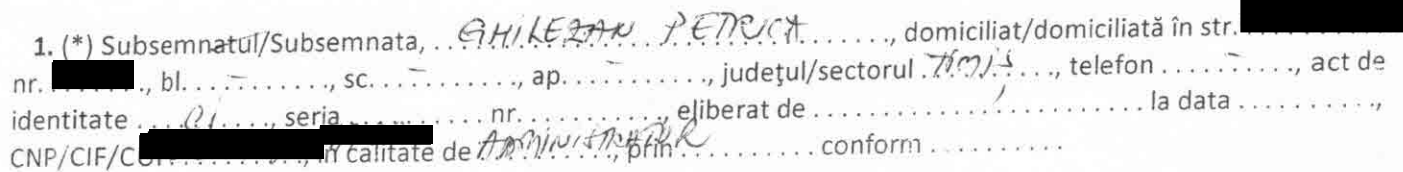 1. (*) Subsemnatul/Subsemnata, . . GHILEZAN PETRICA . . . . . . . ., domiciliat/domiciliată în str.
nr. ., bl. . . – . . . . . ., sc. . . . – . . . . . ., ap. . . . – . . . . . ., judeţul/sectorul . TIMIŞ . . . ., telefon . . . . . – . . . ., act de
identitate . . . CI . . . ., seria . . . . . . . . . nr. . . . . . . . . . ., eliberat de . . . . . . . . . . . . . . . . . . . . . la data . . . . . . . . .,
CNP/CIF/ . . . . . . . ., în calitate de ADMINISTRATOR . . . ., prin . . . . . . . . . . conform . . . . . . . . . .